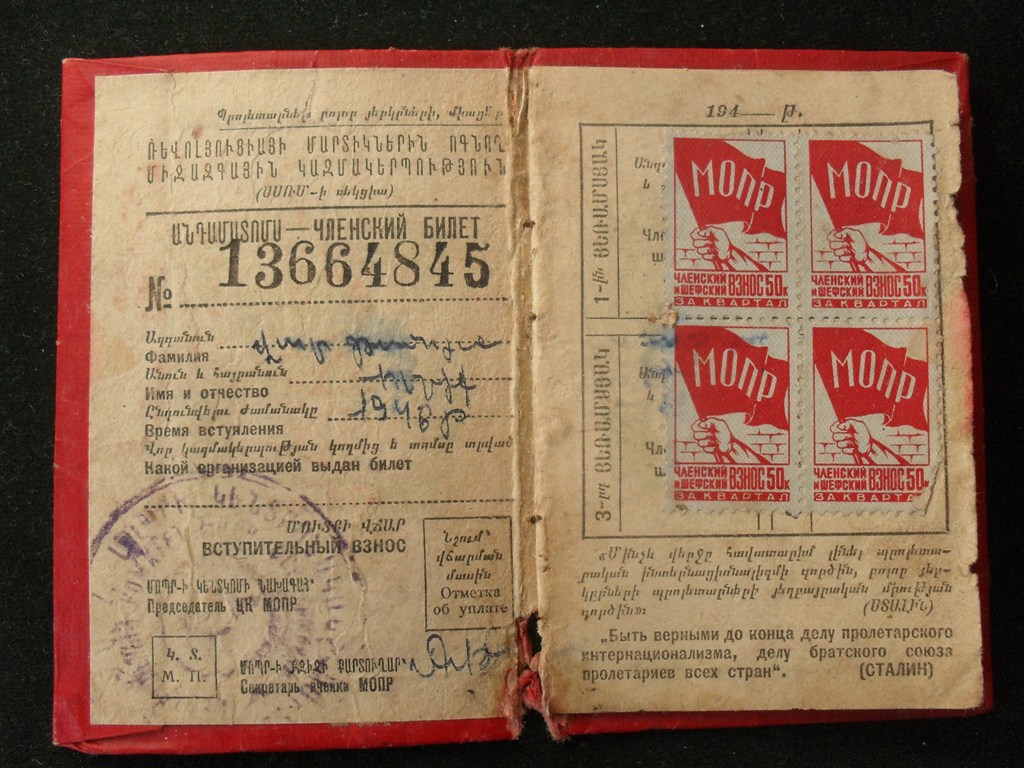 Պրոլետարներ բոլոր յերկրների, միացեք
ՌԵՎՈԼՅՈՒՑԻԱՅԻ ՄԱՐՏԻԿՆԵՐԻՆ ՈԳՆՈՂ
ՄԻՋԱԶԳԱՅԻՆ ԿԱԶՄԱԿԵՐՊՈՒԹՅՈՒՆ
(ՍՍՌՄ-ի սեկցիա)
ԱՆԴԱՄԱՏՈՄՍ — ЧЛЕНСКИЙ БИЛЕТ
№ 13664845
Ազգանուն
Фамилия
Անուն և հայրանուն
Имя и отчество
Ընդունվելու ժամանակը 1948 թ
Время вступления
Վոր կազմակերպության կողմից և տոմսը տրված
Какой организацией выдан билет
ՄՈՒՏՔԻ ՎՃԱՐ
ВСТУПИТЕЛЬНЫЙ ВЗНОС
Նշում
վճարման
մասին
Отметка
об уплате
ՄՈՊՐ-Ի ԿԵՏԿՈՄԻ ՆԱԽԱԳԱՀ
Председатель ЦК МОПР
Կ. Տ.
М. П.
ՄՈՊՐ-Ի ԲՋԻՋԻ ՔԱՐՏՈՒՂԱՐ
Секретарь ячейки МОПР
194 թ.
1-ին ՅԵՌԱՄՍՅԱԿ
МОПР
ЧЛЕНСКИЙ
И ШЕФСКИЙ ВЗНОС 50к
ЗА КВАРТАЛ
МОПР
ЧЛЕНСКИЙ
И ШЕФСКИЙ ВЗНОС 50к
ЗА КВАРТАЛ
3-րդ ՅԵՌԱՄՍՅԱԿ
МОПР
ЧЛЕНСКИЙ
И ШЕФСКИЙ ВЗНОС 50к
ЗА КВАРТАЛ
МОПР
ЧЛЕНСКИЙ
И ШЕФСКИЙ ВЗНОС 50к
ЗА КВАРТАЛ
«Մինչև վերջը հավատարիմ լինել պրոլետա-
րական ինտերնացիոնալիզմի գործին, բոլոր յեր-
կըրների պրոլետարների յեղբայրական միության
գործին»։ (ՍՏԱԼԻՆ)
„Быть верными до конца делу пролетарского
интернационализма, делу братского союза
пролетариев всех стран“. (СТАЛИН)